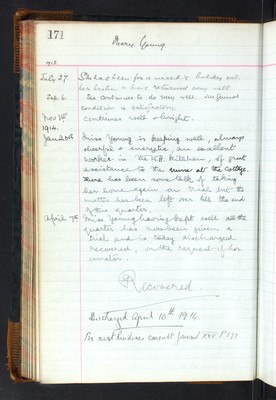 171
Mary Young
1913.
July 27. She has been for a week's holiday with
her brother & has returned very well.
Sep. 6. She continues to do very well, her general
condition is satisfactory.
Nov 1st continues well & bright.
1914.
Jan 20th Miss Young is keeping well, always
cheerful & energetic, an excellent
worker in the kitchen, of great
assistance to the nurse at the Cottage.
There has been some talk of taking
her home again on trial but the
matter has been left over till the end
of the quarter.
April 7th Miss Young having kept well all the
quarter has now been given a
trial and is today discharged
recovered, on the request of her
curator.
Recovered.
Discharged April 10th 1914
For next Residence consult Journal XXV P